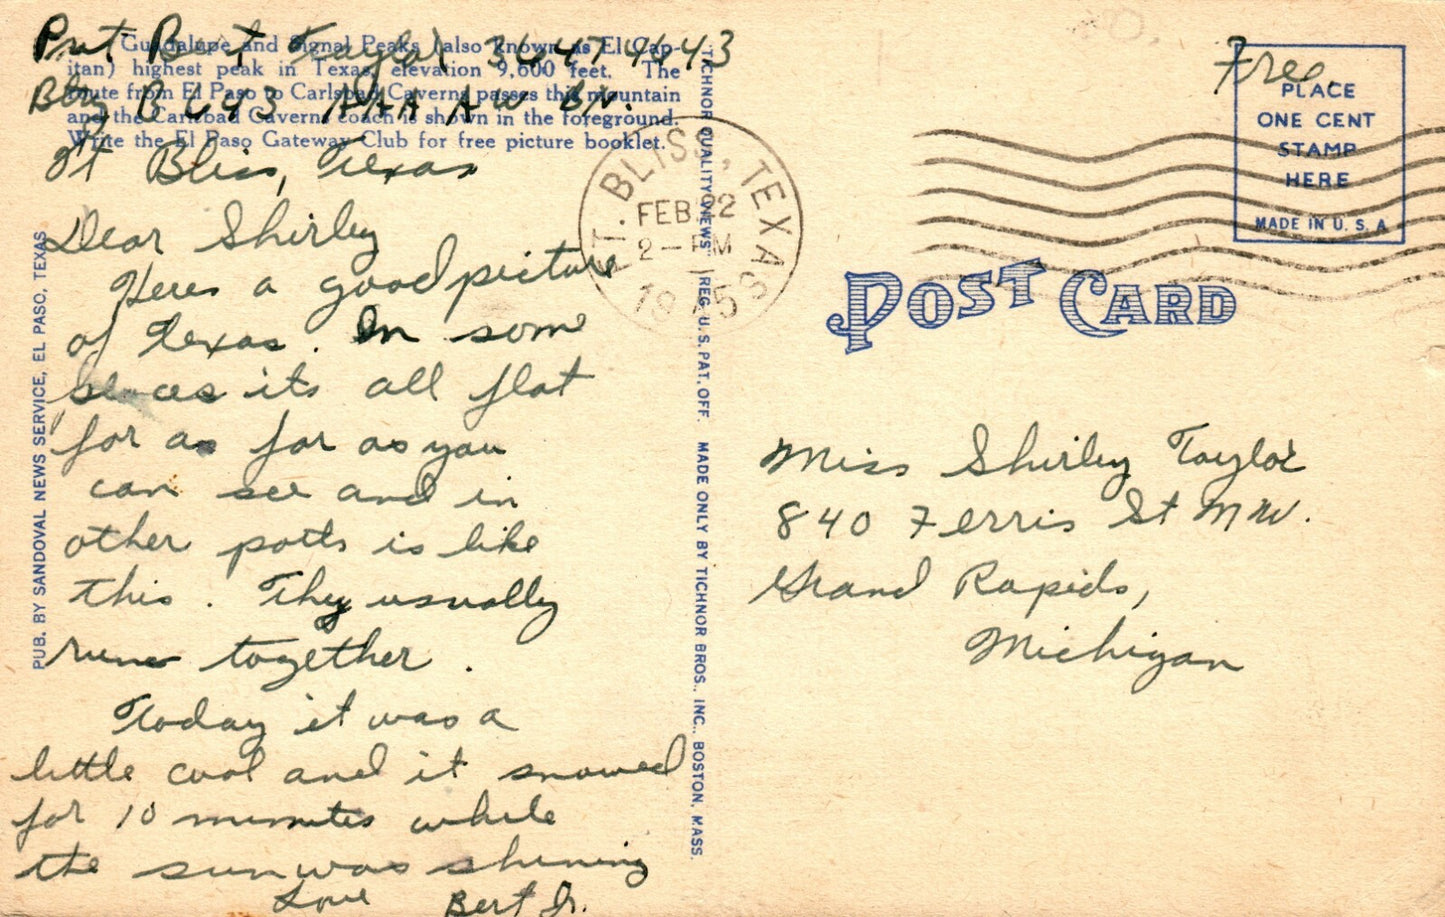 Pvt Bert Taylor 36474643
Btry B 643 AAA AW BN.
Ft Bliss, Texas
Guadalupe and Signal Peaks (also known as El Cap-
itan) highest peak in Texas, elevation 9,600 feet. The
route from El Paso to Carlsbad Caverns passes this mountain
and the Carlsbad Caverns coach is shown in the foreground.
Write the El Paso Gateway Club for free picture booklet.
Dear Shirley
Heres a good picture
of Texas. In some
places its all flat
for as far as you
can see and in
other parts is like
this. They usually
runs together.
Today it was a
little cool and it snowed
for 10 minutes while
the sun was shining
Love Bert Jr.
PUB. BY SANDOVAL NEWS SERVICE, EL PASO, TEXAS
"TICHNOR QUALITY VIEWS" REG. U. S. PAT. OFF. MADE ONLY BY TICHNOR BROS., INC., BOSTON, MASS.
FT. BLISS, TEXAS
FEB 22
2 - PM
Free
PLACE
ONE CENT
STAMP
HERE
MADE IN U. S. A
POST CARD
Miss Shirley Taylor
840 Ferris St N.W.
Grand Rapids,
Michigan